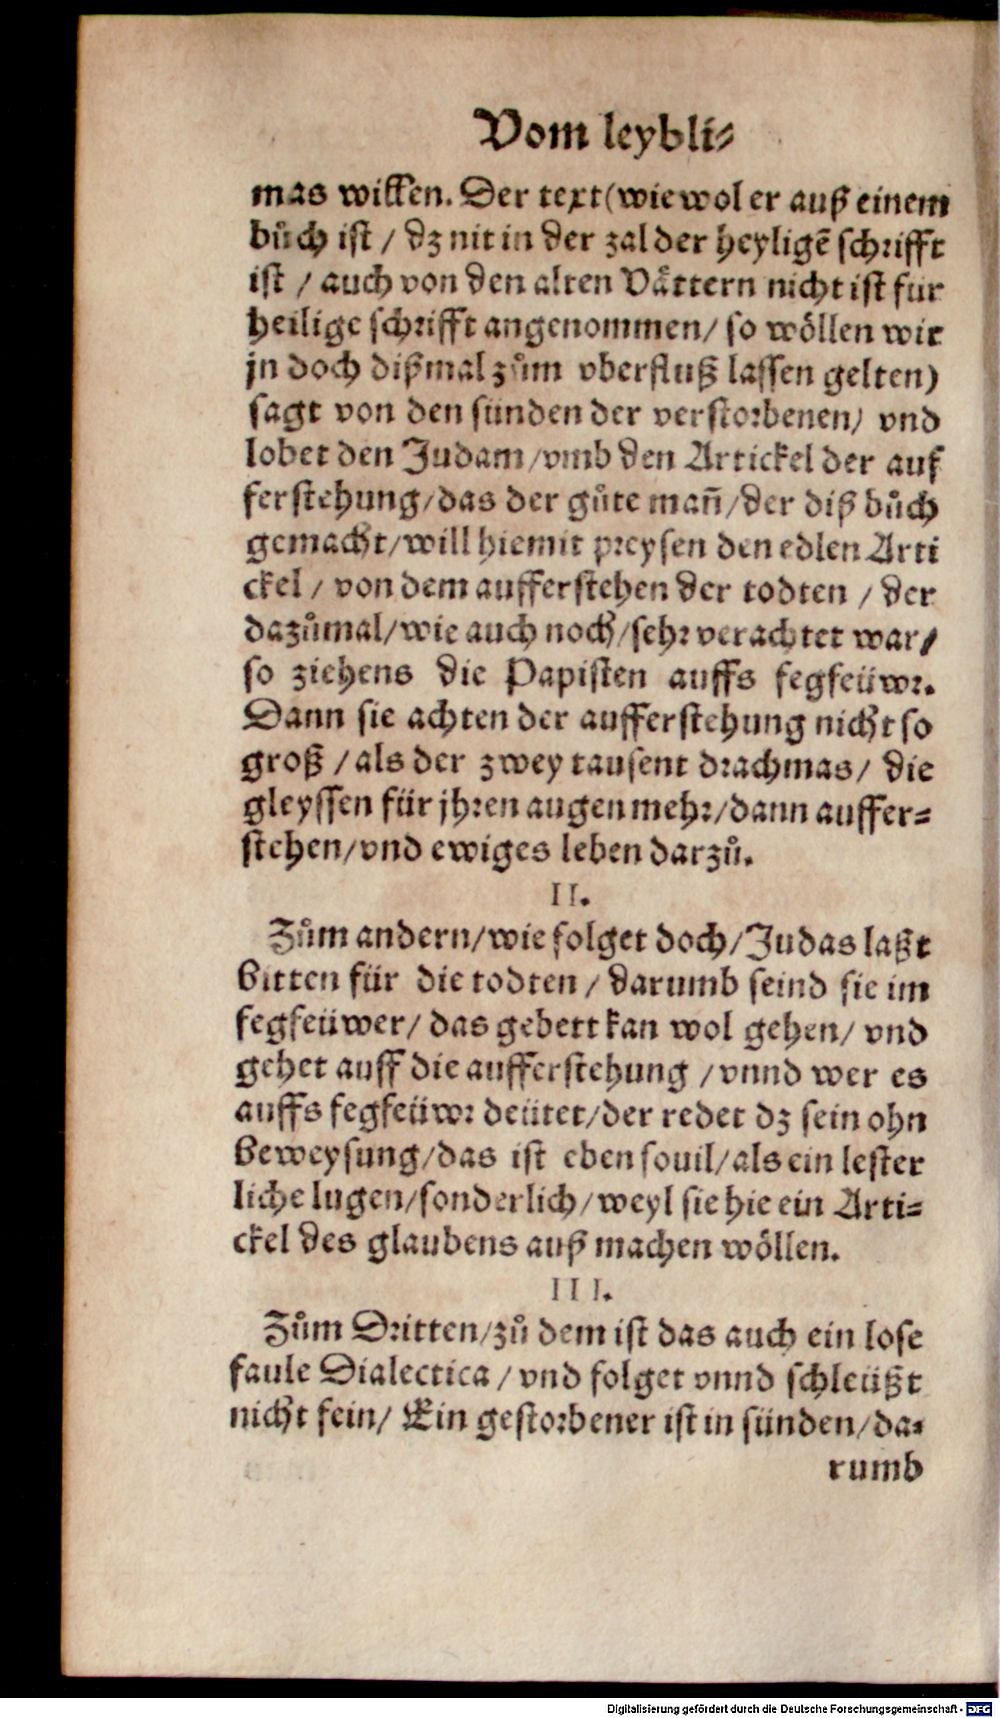 Vom leybli⸗
mas willen. Der text (wie wol er auß einem
bůch ist / dz nit in der zal der heyligẽ schrifft
ist / auch von den alten Vättern nicht ist für
heilige schrifft angenommen / so wöllen wir
jn doch dißmal zům vberfluß lassen gelten)
sagt von den sünden der verstorbenen / vnd
lobet den Judam / vmb den Artickel der auf
ferstehung / das der gůte mañ / der diß bůch
gemacht / will hiemit preysen den edlen Arti
ckel / von dem aufferstehen der todten / der
dazůmal / wie auch noch / sehr verachtet war /
so ziehens die Papisten auffs fegfeüwr.
Dann sie achten der aufferstehung nicht so
groß / als der zwey tausent drachmas / die
gleyssen für jhren augen mehr / dann auffer⸗
stehen / vnd ewiges leben darzů.
II.
Zům andern / wie folget doch / Judas laßt
bitten für die todten / darumb seind sie im
fegfeüwer / das gebett kan wol gehen / vnd
gehet auff die aufferstehung / vnnd wer es
auffs fegfeüwr deütet / der redet dz sein ohn
beweysung / das ist eben souil / als ein lester
liche lugen / sonderlich / weyl sie hie ein Arti⸗
ckel des glaubens auß machen wöllen.
III.
Zům Dritten / zů dem ist das auch ein lose
faule Dialectica / vnd folget vnnd schleüßt
nicht fein / Ein gestorbener ist in sünden / da⸗
rumb
Digitalisierung gefördert durch die Deutsche Forschungsgemeinschaft - DFG